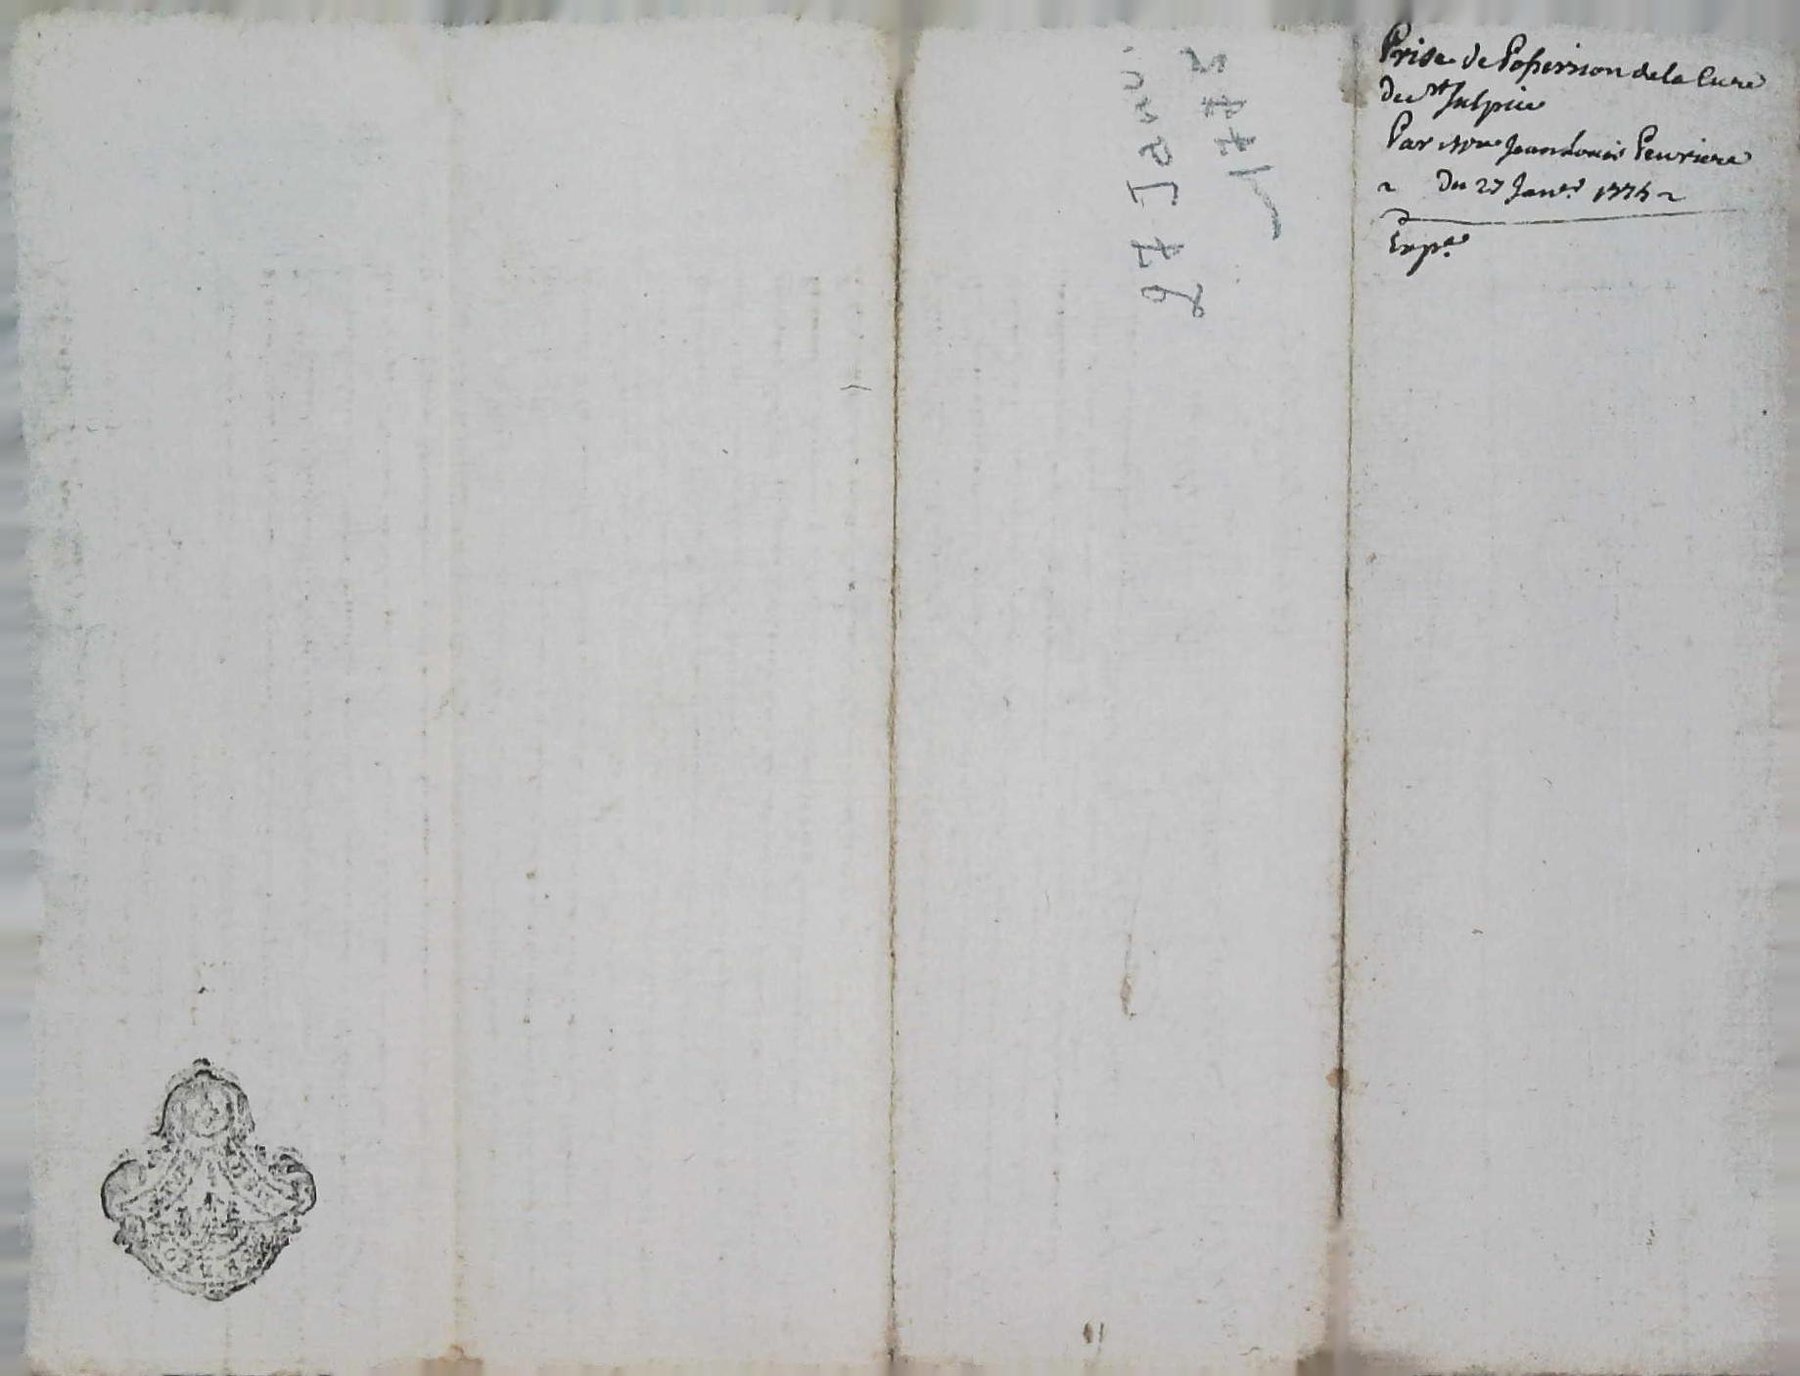 Prise de Possession de la Cure
de St Sulpice
Par Mre Jean Louis Peuriere
~ Du 27 Janer 1775 ~
Expe.
27 Janv.
1775